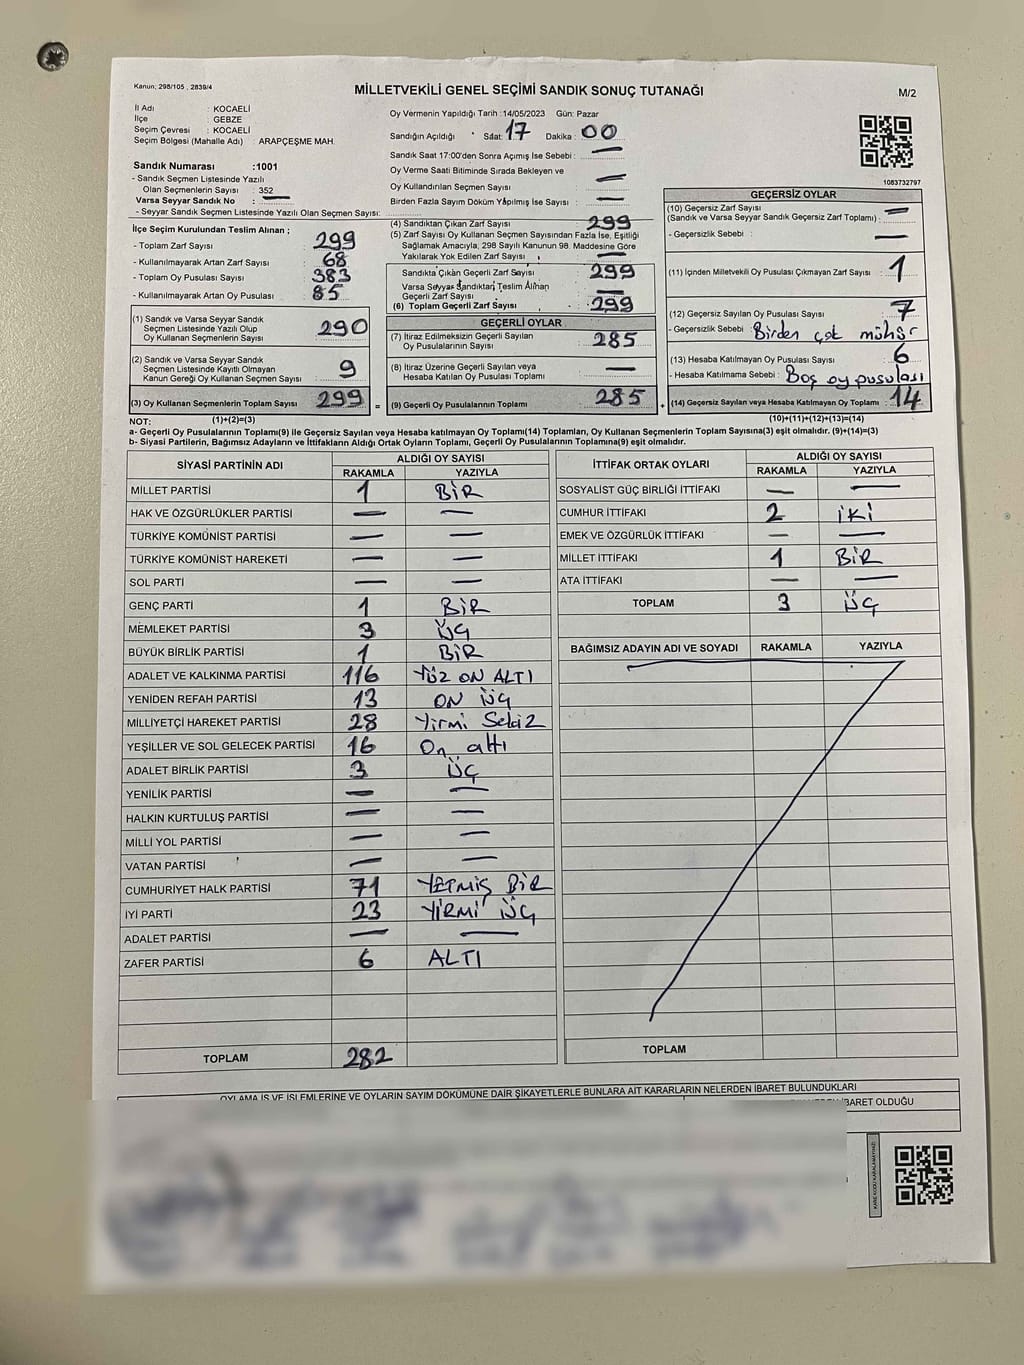 Kanun: 298/105 , 2839/4
MİLLETVEKİLİ GENEL SEÇİMİ SANDIK SONUÇ TUTANAĞI
M/2
İl Adı : KOCAELİ
İlçe : GEBZE
Seçim Çevresi : KOCAELİ
Seçim Bölgesi (Mahalle Adı) : ARAPÇEŞME MAH.
Sandık Numarası :1001
- Sandık Seçmen Listesinde Yazılı
Olan Seçmenlerin Sayısı : 352
Varsa Seyyar Sandık No : —
- Seyyar Sandık Seçmen Listesinde Yazılı Olan Seçmen Sayısı:
Oy Vermenin Yapıldığı Tarih :14/05/2023 Gün: Pazar
Sandığın Açıldığı Saat: 17 Dakika : 00
Sandık Saat 17:00'den Sonra Açılmış İse Sebebi : —
Oy Verme Saati Bitiminde Sırada Bekleyen ve
Oy Kullandırılan Seçmen Sayısı : —
Birden Fazla Sayım Döküm Yapılmış İse Sayısı : —
1083732797
İlçe Seçim Kurulundan Teslim Alınan ;
- Toplam Zarf Sayısı : 299
- Kullanılmayarak Artan Zarf Sayısı : 68
- Toplam Oy Pusulası Sayısı : 383
- Kullanılmayarak Artan Oy Pusulası : 85
(1) Sandık ve Varsa Seyyar Sandık
Seçmen Listesinde Yazılı Olup
Oy Kullanan Seçmenlerin Sayısı : 290
(2) Sandık ve Varsa Seyyar Sandık
Seçmen Listesinde Kayıtlı Olmayan
Kanun Gereği Oy Kullanan Seçmen Sayısı : 9
(3) Oy Kullanan Seçmenlerin Toplam Sayısı : 299
(1)+(2)=(3)
(4) Sandıktan Çıkan Zarf Sayısı : 299
(5) Zarf Sayısı Oy Kullanan Seçmen Sayısından Fazla İse, Eşitliği
Sağlamak Amacıyla, 298 Sayılı Kanunun 98. Maddesine Göre
Yakılarak Yok Edilen Zarf Sayısı : —
Sandıkta Çıkan Geçerli Zarf Sayısı : 299
Varsa Seyyar Sandıktan Teslim Alınan
Geçerli Zarf Sayısı : —
(6) Toplam Geçerli Zarf Sayısı : 299
GEÇERLİ OYLAR
(7) İtiraz Edilmeksizin Geçerli Sayılan
Oy Pusulalarının Sayısı : 285
(8) İtiraz Üzerine Geçerli Sayılan veya
Hesaba Katılan Oy Pusulası Toplamı : —
= (9) Geçerli Oy Pusulalarının Toplamı : 285
GEÇERSİZ OYLAR
(10) Geçersiz Zarf Sayısı : —
(Sandık ve Varsa Seyyar Sandık Geçersiz Zarf Toplamı) :
- Geçersizlik Sebebi : —
(11) İçinden Milletvekili Oy Pusulası Çıkmayan Zarf Sayısı : 1
(12) Geçersiz Sayılan Oy Pusulası Sayısı : 7
- Geçersizlik Sebebi : Birden çok mühür
(13) Hesaba Katılmayan Oy Pusulası Sayısı : 6
- Hesaba Katılmama Sebebi : Boş oy pusulası
+ (14) Geçersiz Sayılan veya Hesaba Katılmayan Oy Toplamı : 14
(10)+(11)+(12)+(13)=(14)
NOT:
a- Geçerli Oy Pusulalarının Toplamı(9) ile Geçersiz Sayılan veya Hesaba katılmayan Oy Toplamı(14) Toplamları, Oy Kullanan Seçmenlerin Toplam Sayısına(3) eşit olmalıdır. (9)+(14)=(3)
b- Siyasi Partilerin, Bağımsız Adayların ve İttifakların Aldığı Ortak Oyların Toplamı, Geçerli Oy Pusulalarının Toplamına(9) eşit olmalıdır.
SİYASİ PARTİNİN ADI ALDIĞI OY SAYISI
RAKAMLA YAZIYLA
MİLLET PARTİSİ 1 BİR
HAK VE ÖZGÜRLÜKLER PARTİSİ — —
TÜRKİYE KOMÜNİST PARTİSİ — —
TÜRKİYE KOMÜNİST HAREKETİ — —
SOL PARTİ — —
GENÇ PARTİ 1 BİR
MEMLEKET PARTİSİ 3 ÜÇ
BÜYÜK BİRLİK PARTİSİ 1 BİR
ADALET VE KALKINMA PARTİSİ 116 YÜZ ON ALTI
YENİDEN REFAH PARTİSİ 13 ON ÜÇ
MİLLİYETÇİ HAREKET PARTİSİ 28 Yirmi Sekiz
YEŞİLLER VE SOL GELECEK PARTİSİ 16 On altı
ADALET BİRLİK PARTİSİ 3 ÜÇ
YENİLİK PARTİSİ — —
HALKIN KURTULUŞ PARTİSİ — —
MİLLİ YOL PARTİSİ — —
VATAN PARTİSİ — —
CUMHURİYET HALK PARTİSİ 71 YETMİŞ BİR
İYİ PARTİ 23 YİRMİ ÜÇ
ADALET PARTİSİ — —
ZAFER PARTİSİ 6 ALTI
TOPLAM 282
İTTİFAK ORTAK OYLARI ALDIĞI OY SAYISI
RAKAMLA YAZIYLA
SOSYALİST GÜÇ BİRLİĞİ İTTİFAKI — —
CUMHUR İTTİFAKI 2 İKİ
EMEK VE ÖZGÜRLÜK İTTİFAKI — —
MİLLET İTTİFAKI 1 BİR
ATA İTTİFAKI — —
TOPLAM 3 ÜÇ
BAĞIMSIZ ADAYIN ADI VE SOYADI RAKAMLA YAZIYLA
TOPLAM
OYLAMA İŞ VE İŞLEMLERİNE VE OYLARIN SAYIM DÖKÜMÜNE DAİR ŞİKAYETLERLE BUNLARA AİT KARARLARIN NELERDEN İBARET BULUNDUKLARI
İBARET OLDUĞU